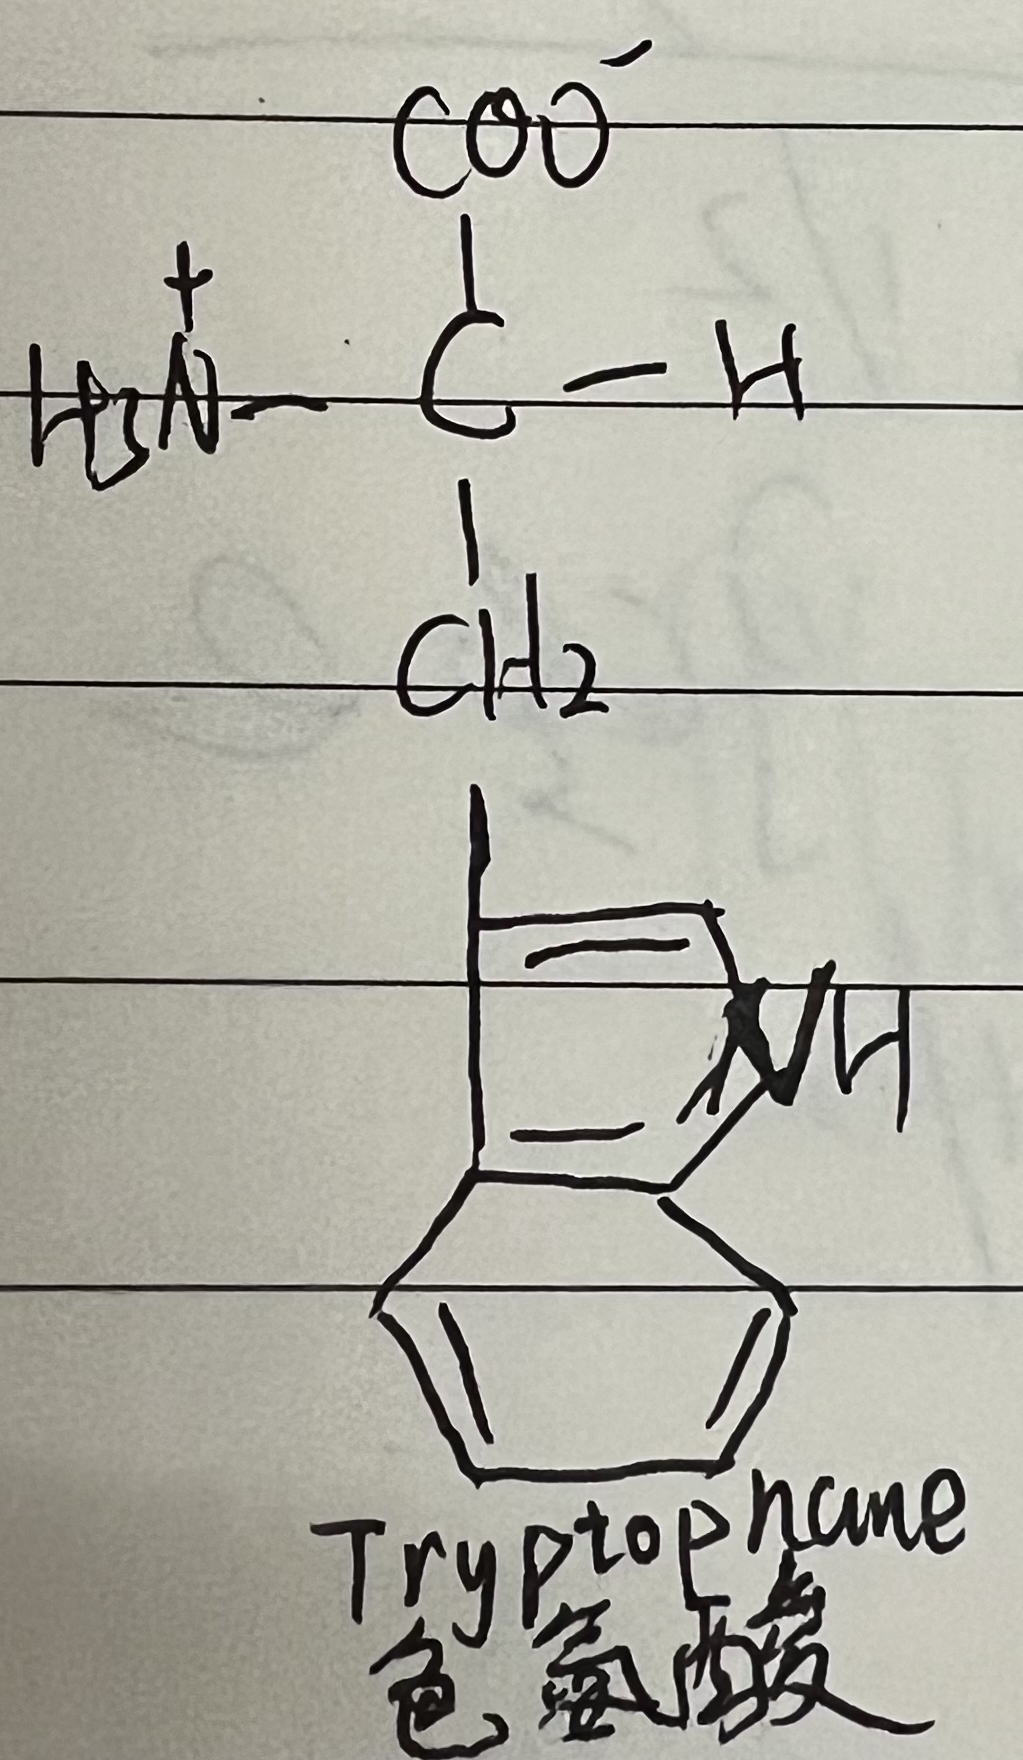 COO⁻
H₃N⁺ — C — H
CH₂
NH
Tryptophane
色氨酸